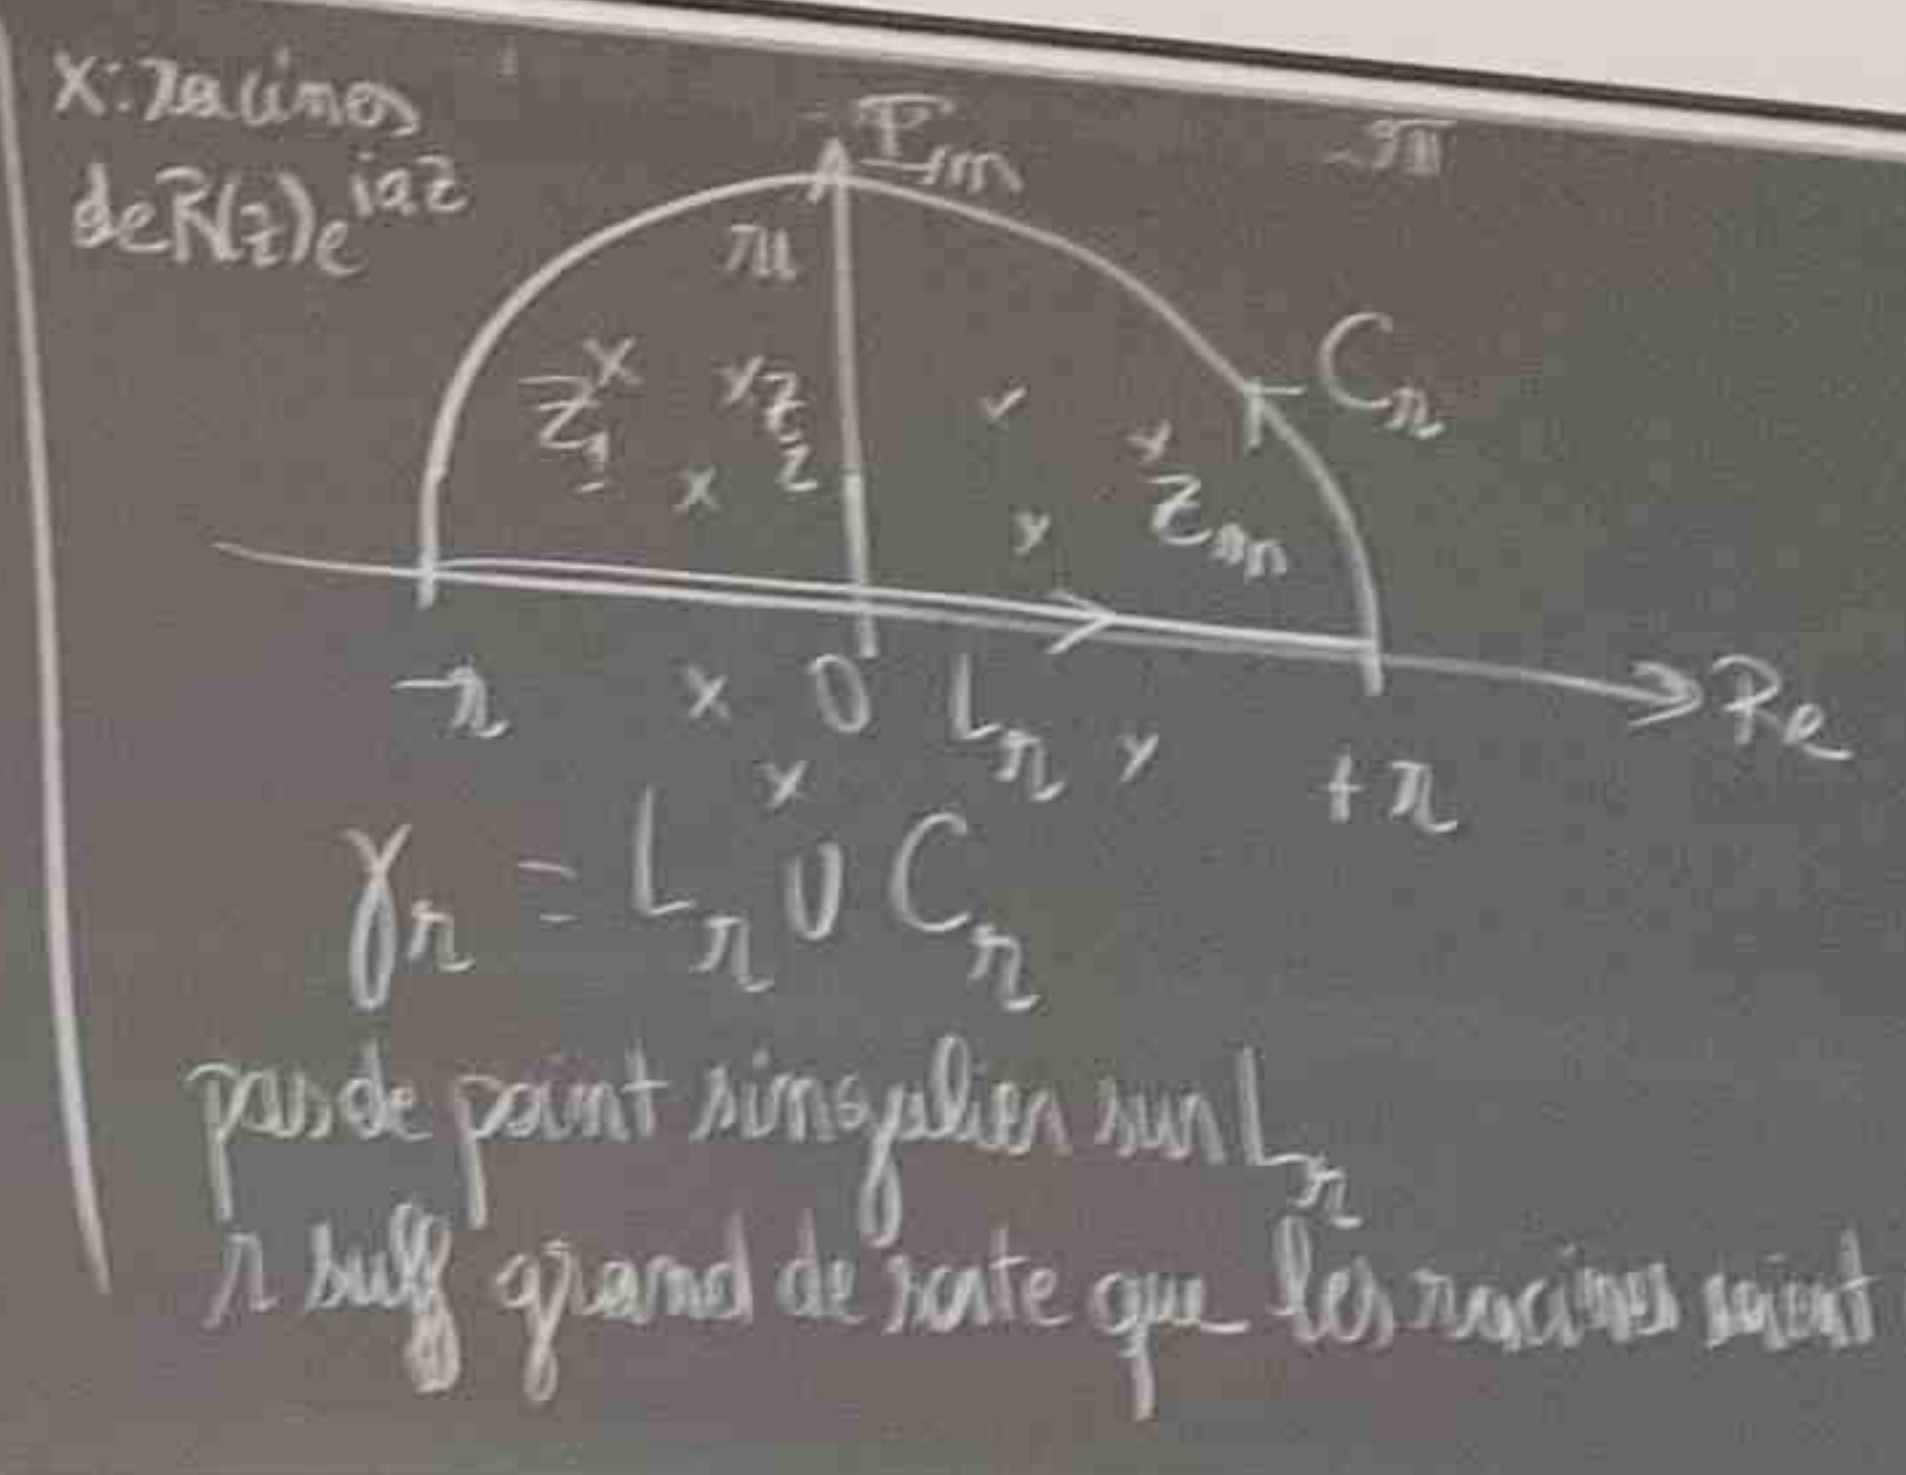 x: racines
de R(z)e^{iaz}
Im
C_r
z_1
z_2
z_m
-r
0
L_r
+r
Re
γ_r = L_r ∪ C_r
pas de point singulier sur L_r
r suff grand de sorte que les racines soient